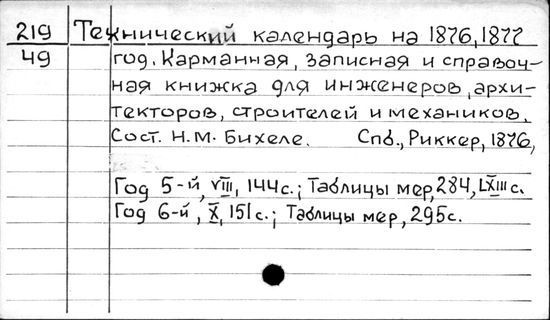 219 Технический календарь на 1876, 1877
49 год. Карманная, записная и справоч-
ная книжка для инженеров, архи-
текторов, строителей и механиков.
Сост. Н.М. Бихеле. Спб., Риккер, 1876,
Год 5-й, VIII, 144с.; Таблицы мер, 284, LXIII с.
Год 6-й, X, 151с.; Таблицы мер, 295с.